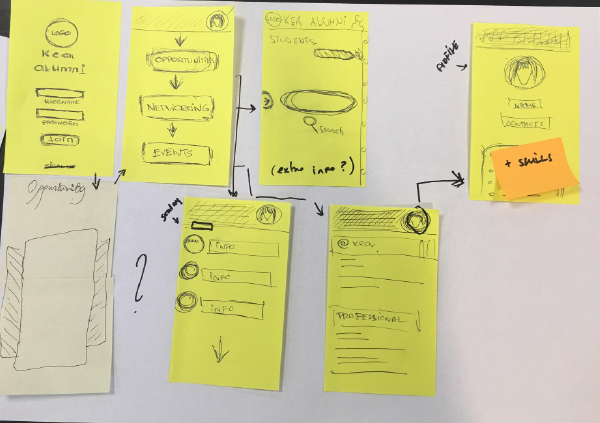 LOGO
KEA
alumni
USERNAME
PASSWORD
Join
Opportunity
OPPORTUNITIES
NETWORKING
EVENTS
KEA ALUMNI
STUDENTS
Search
(extra info?)
PROFILE
NAME
CONTACTS
+ SKILLS
?
INFO
INFO
INFO
@ KEA.
PROFESSIONAL